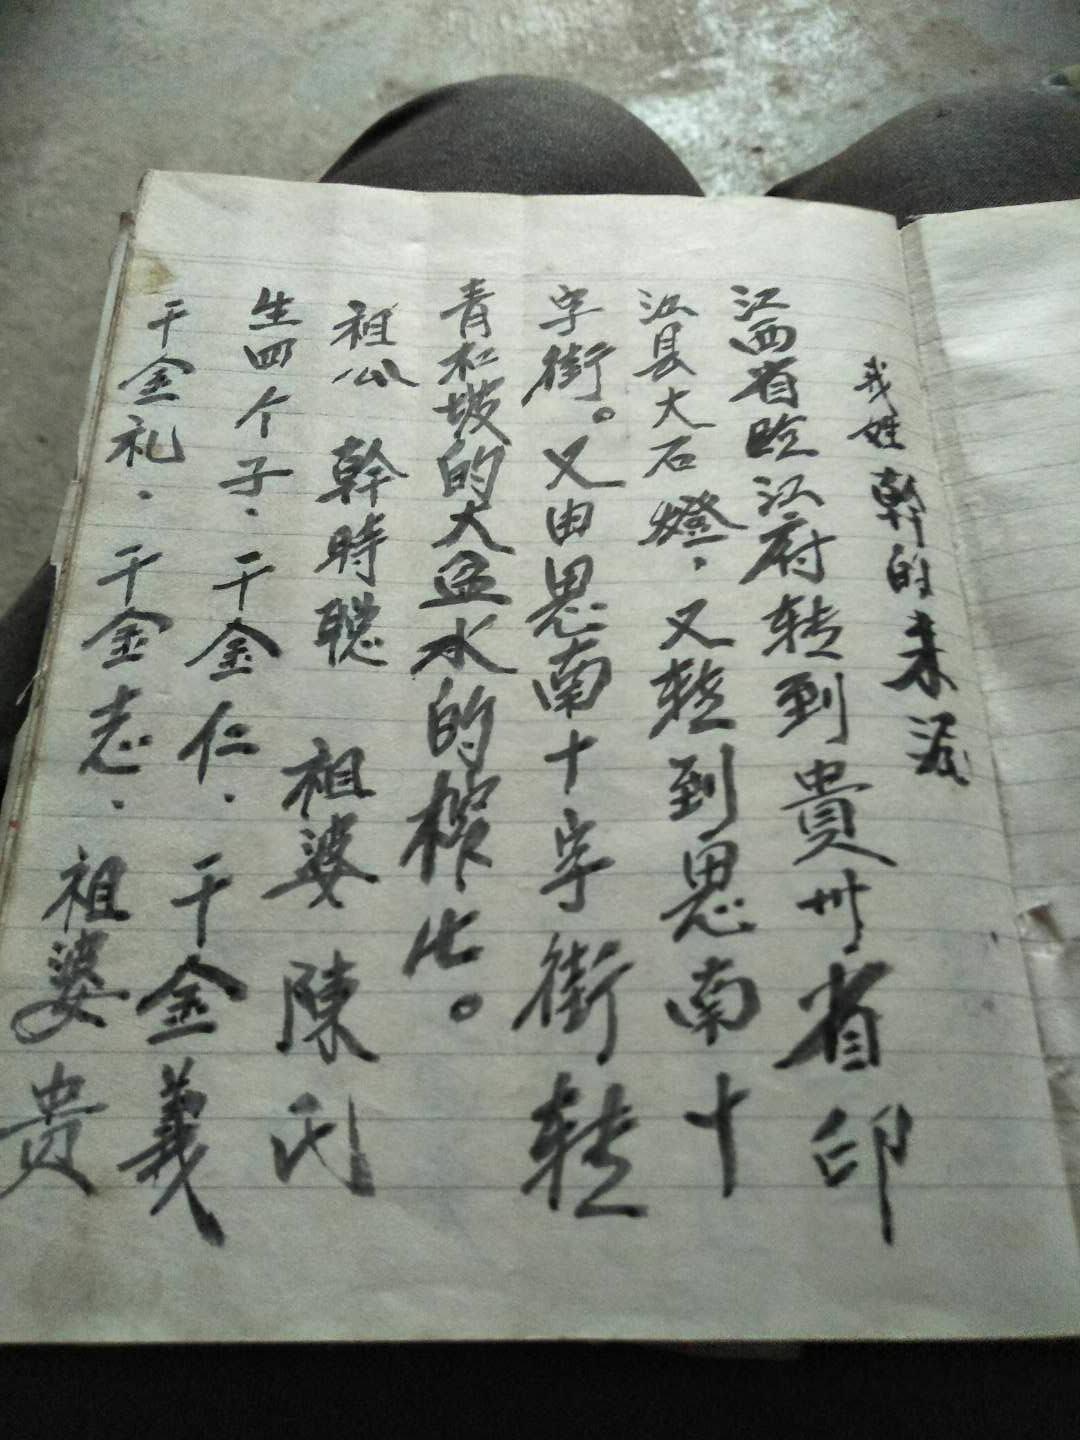 我姓幹的来源
江西省临江府转到貴州省印
江县大石燈、又转到思南十
字街。又由思南十字街转
青杠坡的大盆水的榨
祖公 幹時聪 祖婆 陳氏
生四个子、干金仁、干金義
干金礼、干金志、祖婆贵